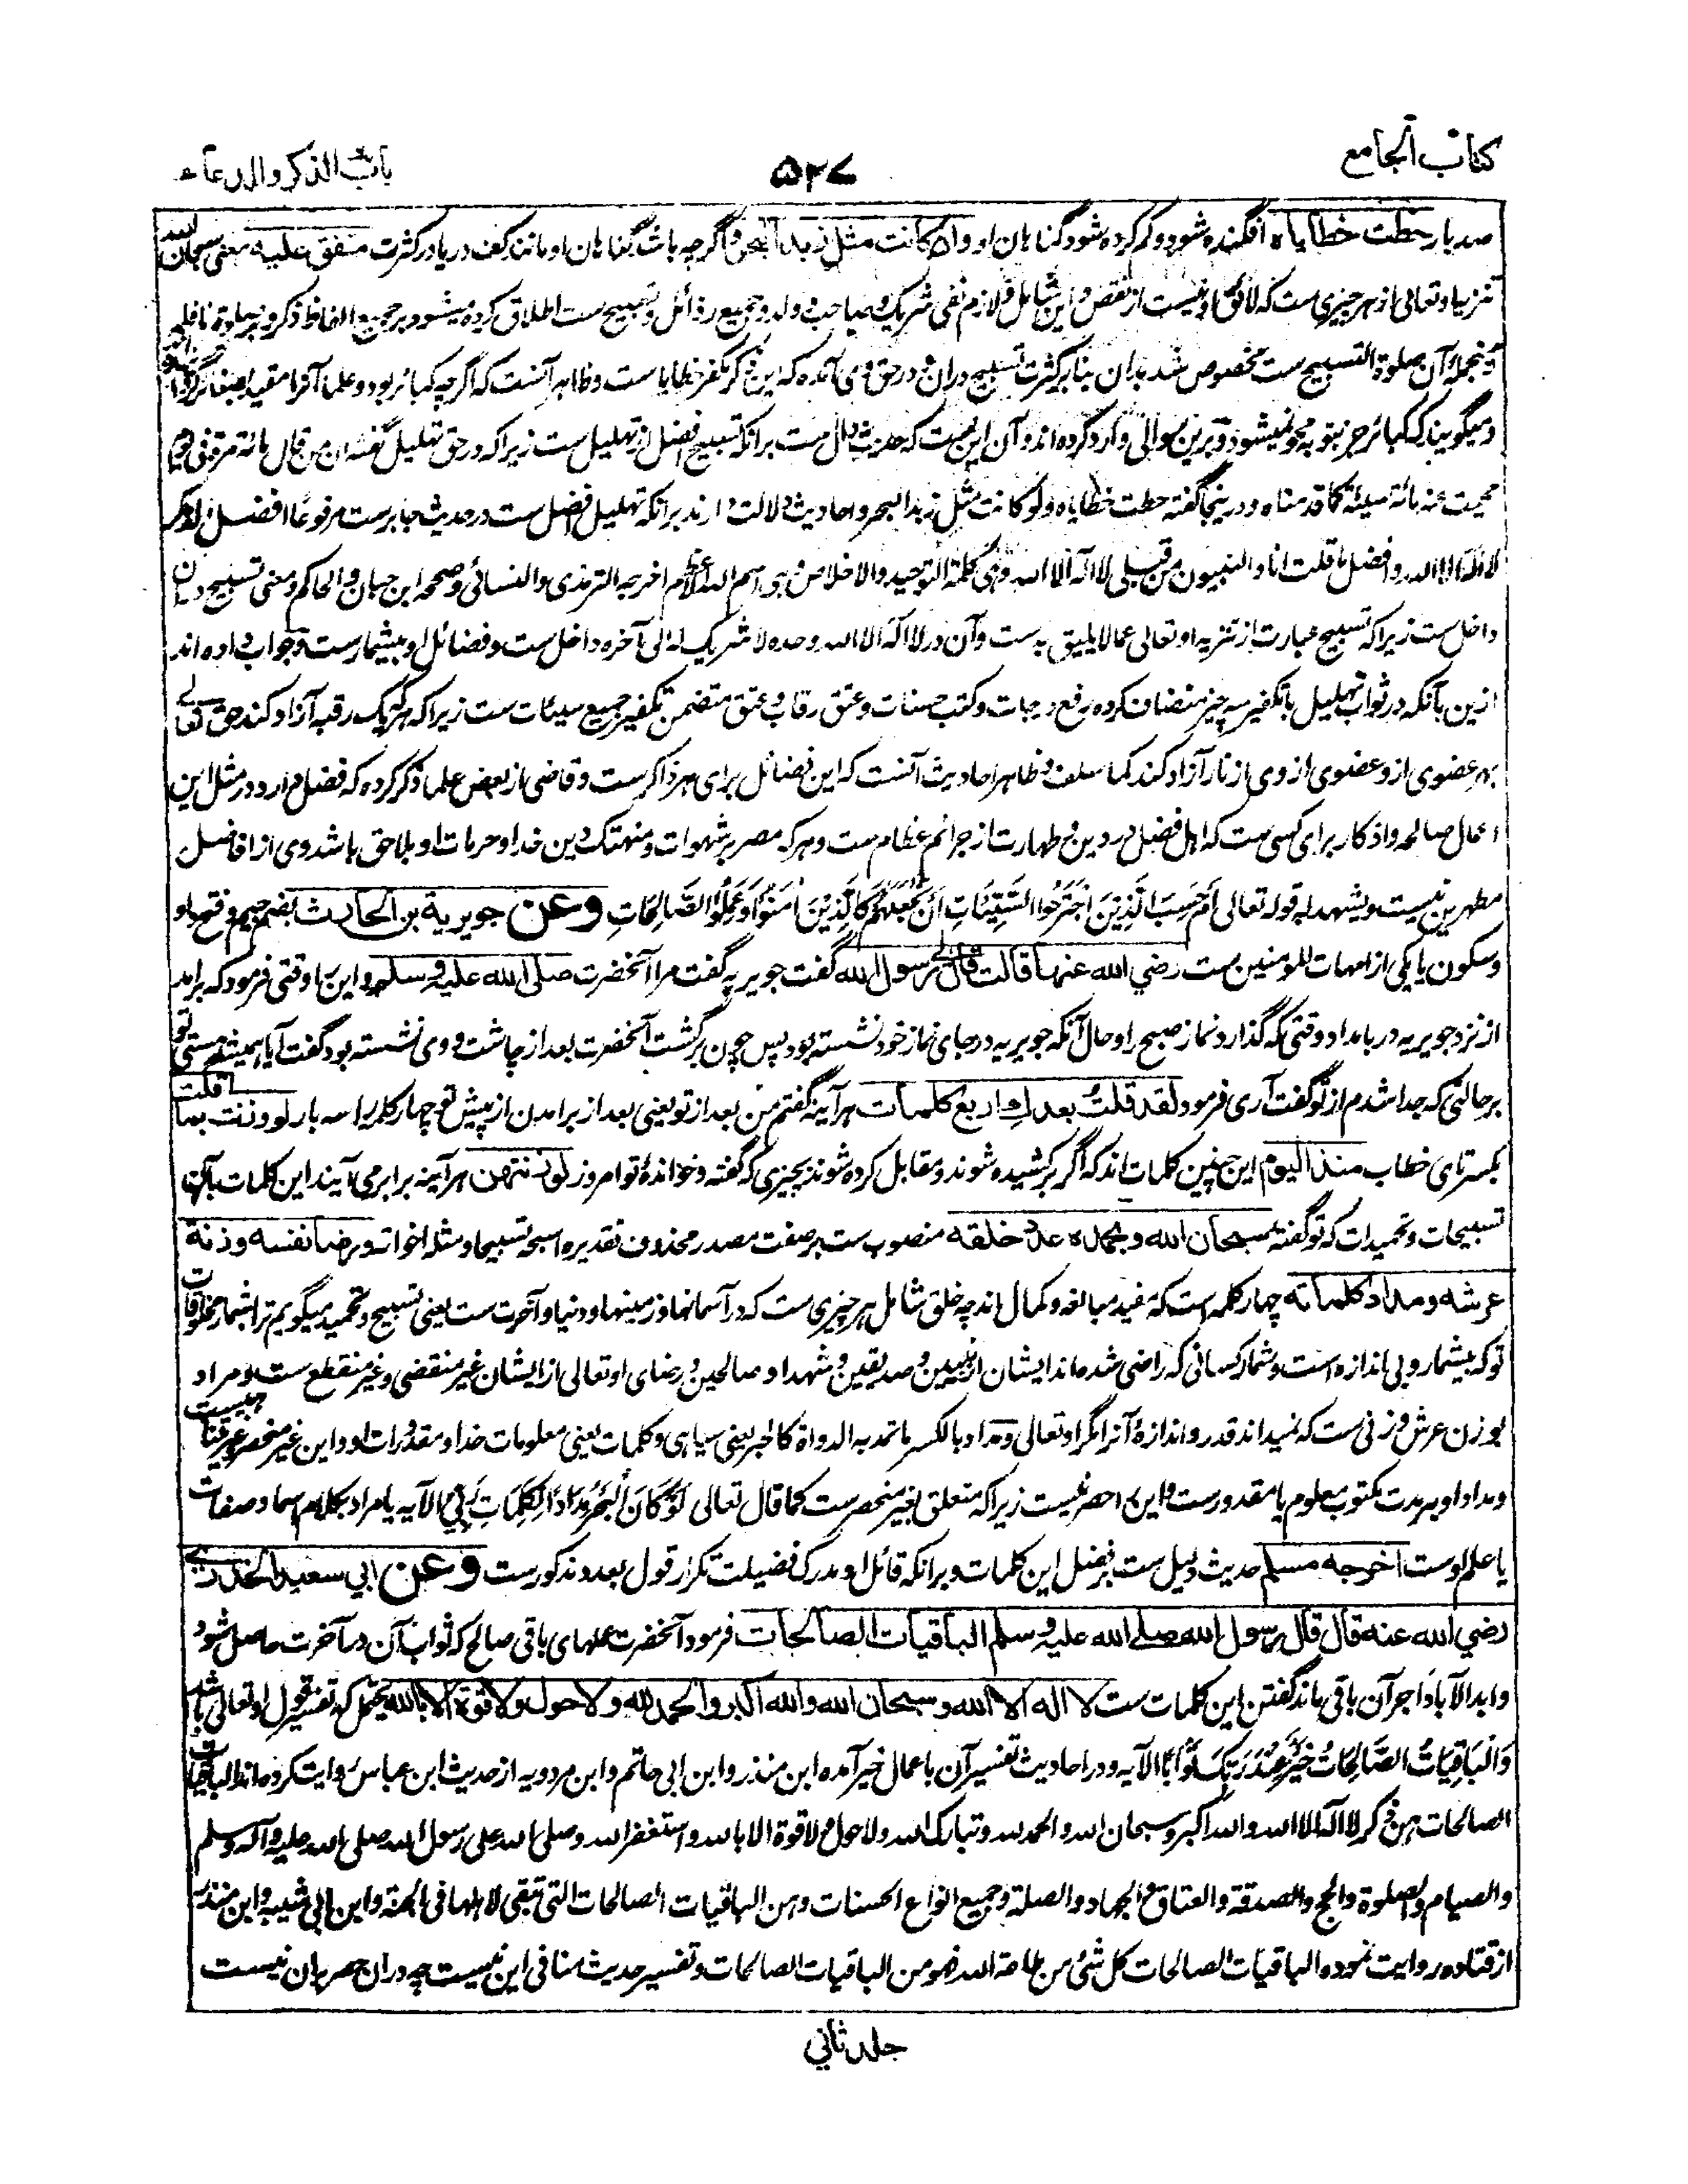 كتاب الجامع
۵۲۷
باب الذكر والدعاء
صد بار حطت خطاياه افگنده شود و کم کرده شود گناهان او وان كانت مثل زبد البحر و اگرچه باشد گناهان او مانند کف دریا در کثرت متفق عليه معنی سبحان الله
تنزیه او تعالی از هر چیزی ست که لائق او نیست از نقص و این شامل و لازم نفی شریک و صاحب و ولد و جمیع رذائل و تسبیح ست اطلاق کرده میشود بر جمیع الفاظ ذکر و بر صلوة نافله
و منجمله آن صلوة التسبیح ست مخصوص شد بدان بنا بر کثرت تسبیح دران و در حق وی آمده که این ذکر مکفر خطایا ست و ظاهر آنست که اگرچه کبائر بود و علما آنرا مقید بصغائر کرده اند
و میگویند که کبائر جز بتوبه محو نمیشود و برین سوالی وارد کرده اند و آن این ست که حدیث دال ست برانکه تسبیح افضل از تهلیل ست زیرا که در حق تهلیل گفته ان من قال مائة مرة فی یوم
محیت عنه مائة سیئة کما قدمناه و درینجا گفته حطت خطایاه ولو کانت مثل زبد البحر و احادیث دلالت دارند برانکه تهلیل افضل ست در حدیث جابر ست مرفوعا افضل الذکر
لا اله الا الله و افضل ما قلت انا والنبیون من قبلی لا اله الا الله و هی کلمة التوحید والاخلاص و هی اسم الله الاعظم اخرجه الترمذی والنسائی و صححه ابن حبان والحاکم و معنی تسبیح در آن
داخل ست زیرا که تسبیح عبارت از تنزیه او تعالی عما لا یلیق به ست و آن در لا اله الا الله وحده لا شریک له الی آخره داخل ست و فضائل او بیشمار ست و جواب داده اند
ازین بآنکه در ثواب تهلیل با تکفیر سه چیز منضاف کرده رفع درجات و کتب حسنات و عتق رقاب و عتق متضمن تکفیر جمیع سیئات ست زیرا که هر که یک رقبه آزاد کند حق تعالی
بهر عضوی ازو عضوی از وی از نار آزاد کند کما سلف و ظاهر احادیث آنست که این فضائل برای هر ذاکر ست و قاضی از بعض علما ذکر کرده که فضل وارد در مثل این
اعمال صالحه و اذکار برای کسی ست که اهل فضل در دین و طهارت از جرائم عظام ست و هر که مصر بر شهوات و منهتک دین خدا و حرمات او بلا حق باشد وی از افاضل
مطهرین نیست و یشهد له قوله تعالی أَمْ حَسِبَ الَّذِينَ اجْتَرَحُوا السَّيِّئَاتِ أَنْ نَجْعَلَهُمْ كَالَّذِينَ آمَنُوا وَعَمِلُوا الصَّالِحَاتِ وعن جويرية بن الحارث بضم جیم و فتح واو
و سکون یا یکی از امهات المومنین ست رضي الله عنها قالت قال لي رسول الله گفت جویریه گفت مرا آنحضرت صلى الله عليه وسلم و این را وقتی فرمود که برآمد
از نزد جویریه در بامداد وقتی که گذارد نماز صبح را و حال آنکه جویریه در جای نماز خود نشسته بود پس چون برگشت آنحضرت بعد از چاشت و وی نشسته بود گفت آیا همیشه هستی تو
بر حالتی که جدا شدم از تو گفت آری فرمود لقد قلت بعدك اربع كلمات هر آینه گفتم من بعد از تو یعنی بعد از برآمدن از پیش تو چهار کلمه را سه بار لو وزنت بما قلت
بکسر تای خطاب منذ اليوم این چنین کلمات اند که اگر برکشیده شوند و مقابل کرده شوند بچیزی که گفته و خوانده تو امروز لوزنتهن هر آینه برابر می آیند این کلمات بآن
تسبیحات و تحمیدات که تو گفته سبحان الله وبحمده عدد خلقه منصوب ست بر صفت مصدر محذوف تقدیره اسبحه تسبیحا و مثله اخواته ورضا نفسه وزنة
عرشه ومداد كلماته چهار کلمه است که مفید مبالغه و کمال اند چه خلق شامل هر چیزی ست که در آسمانها و زمینها و دنیا و آخرت ست یعنی تسبیح و تحمید میگویم ترا بشمار مخلوقات
تو که بیشمار و بی اندازه است و شمار کسانی که راضی شده اند ایشان از نبیین و صدیقین و شهدا و صالحین و رضای او تعالی از ایشان غیر منقضی و غیر منقطع ست و مراد
بوزن عرش وزنی ست که نمیداند قدر و اندازه آنرا مگر او تعالی و مداد بالکسر ما تمد به الدواة کالحبر یعنی سیاهی و کلمات یعنی معلومات خدا و مقدورات او و این غیر منحصر و غیر متناهی ست
و مداد او بهر مدت مکتوب معلوم یا مقدور ست و این را حصر نیست زیرا که متعلق بغیر منحصر ست کما قال تعالی لَوْ كَانَ الْبَحْرُ مِدَادًا لِكَلِمَاتِ رَبِّي الآیه یا مراد بکلام اسما و صفات
یا علم اوست اخرجه مسلم حدیث دلیل ست بر فضل این کلمات و برانکه قائل او مدرک فضیلت تکرار قول بعدد مذکور ست وعن ابي سعيد الخدري
رضي الله عنه قال قال رسول الله صلى الله عليه وسلم الباقيات الصالحات فرمود آنحضرت عملهای باقی صالح که ثواب آن در آخرت حاصل شود
و ابد الآباد اجر آن باقی ماند گفتن این کلمات ست لا اله الا الله وسبحان الله والله اكبر والحمد لله ولا حول ولا قوة الا بالله یحتمل که تفسیر قول او تعالی باشد
وَالْبَاقِيَاتُ الصَّالِحَاتُ خَيْرٌ عِنْدَ رَبِّكَ ثَوَابًا الآیه و در احادیث تفسیر آن باعمال خیر آمده ابن منذر و ابن ابی حاتم و ابن مردویه از حدیث ابن عباس روایت کرده اند الباقیات
الصالحات هن ذکر لا اله الا الله والله اکبر و سبحان الله والحمد لله و تبارک الله ولا حول ولا قوة الا بالله و استغفر الله وصلی الله علی رسول الله صلی الله علیه وآله وسلم
والصیام والصلوة والحج والصدقة والعتاق والجهاد والصلة وجمیع انواع الحسنات وهن الباقیات الصالحات التی تبقی لاهلها فی الجنة و ابن ابی شیبه و ابن منذر
از قتاده روایت نموده الباقیات الصالحات کل شئ من طاعة الله فهو من الباقیات الصالحات و تفسیر حدیث منافی این نیست چه دران حصر بران نیست
جلد ثاني